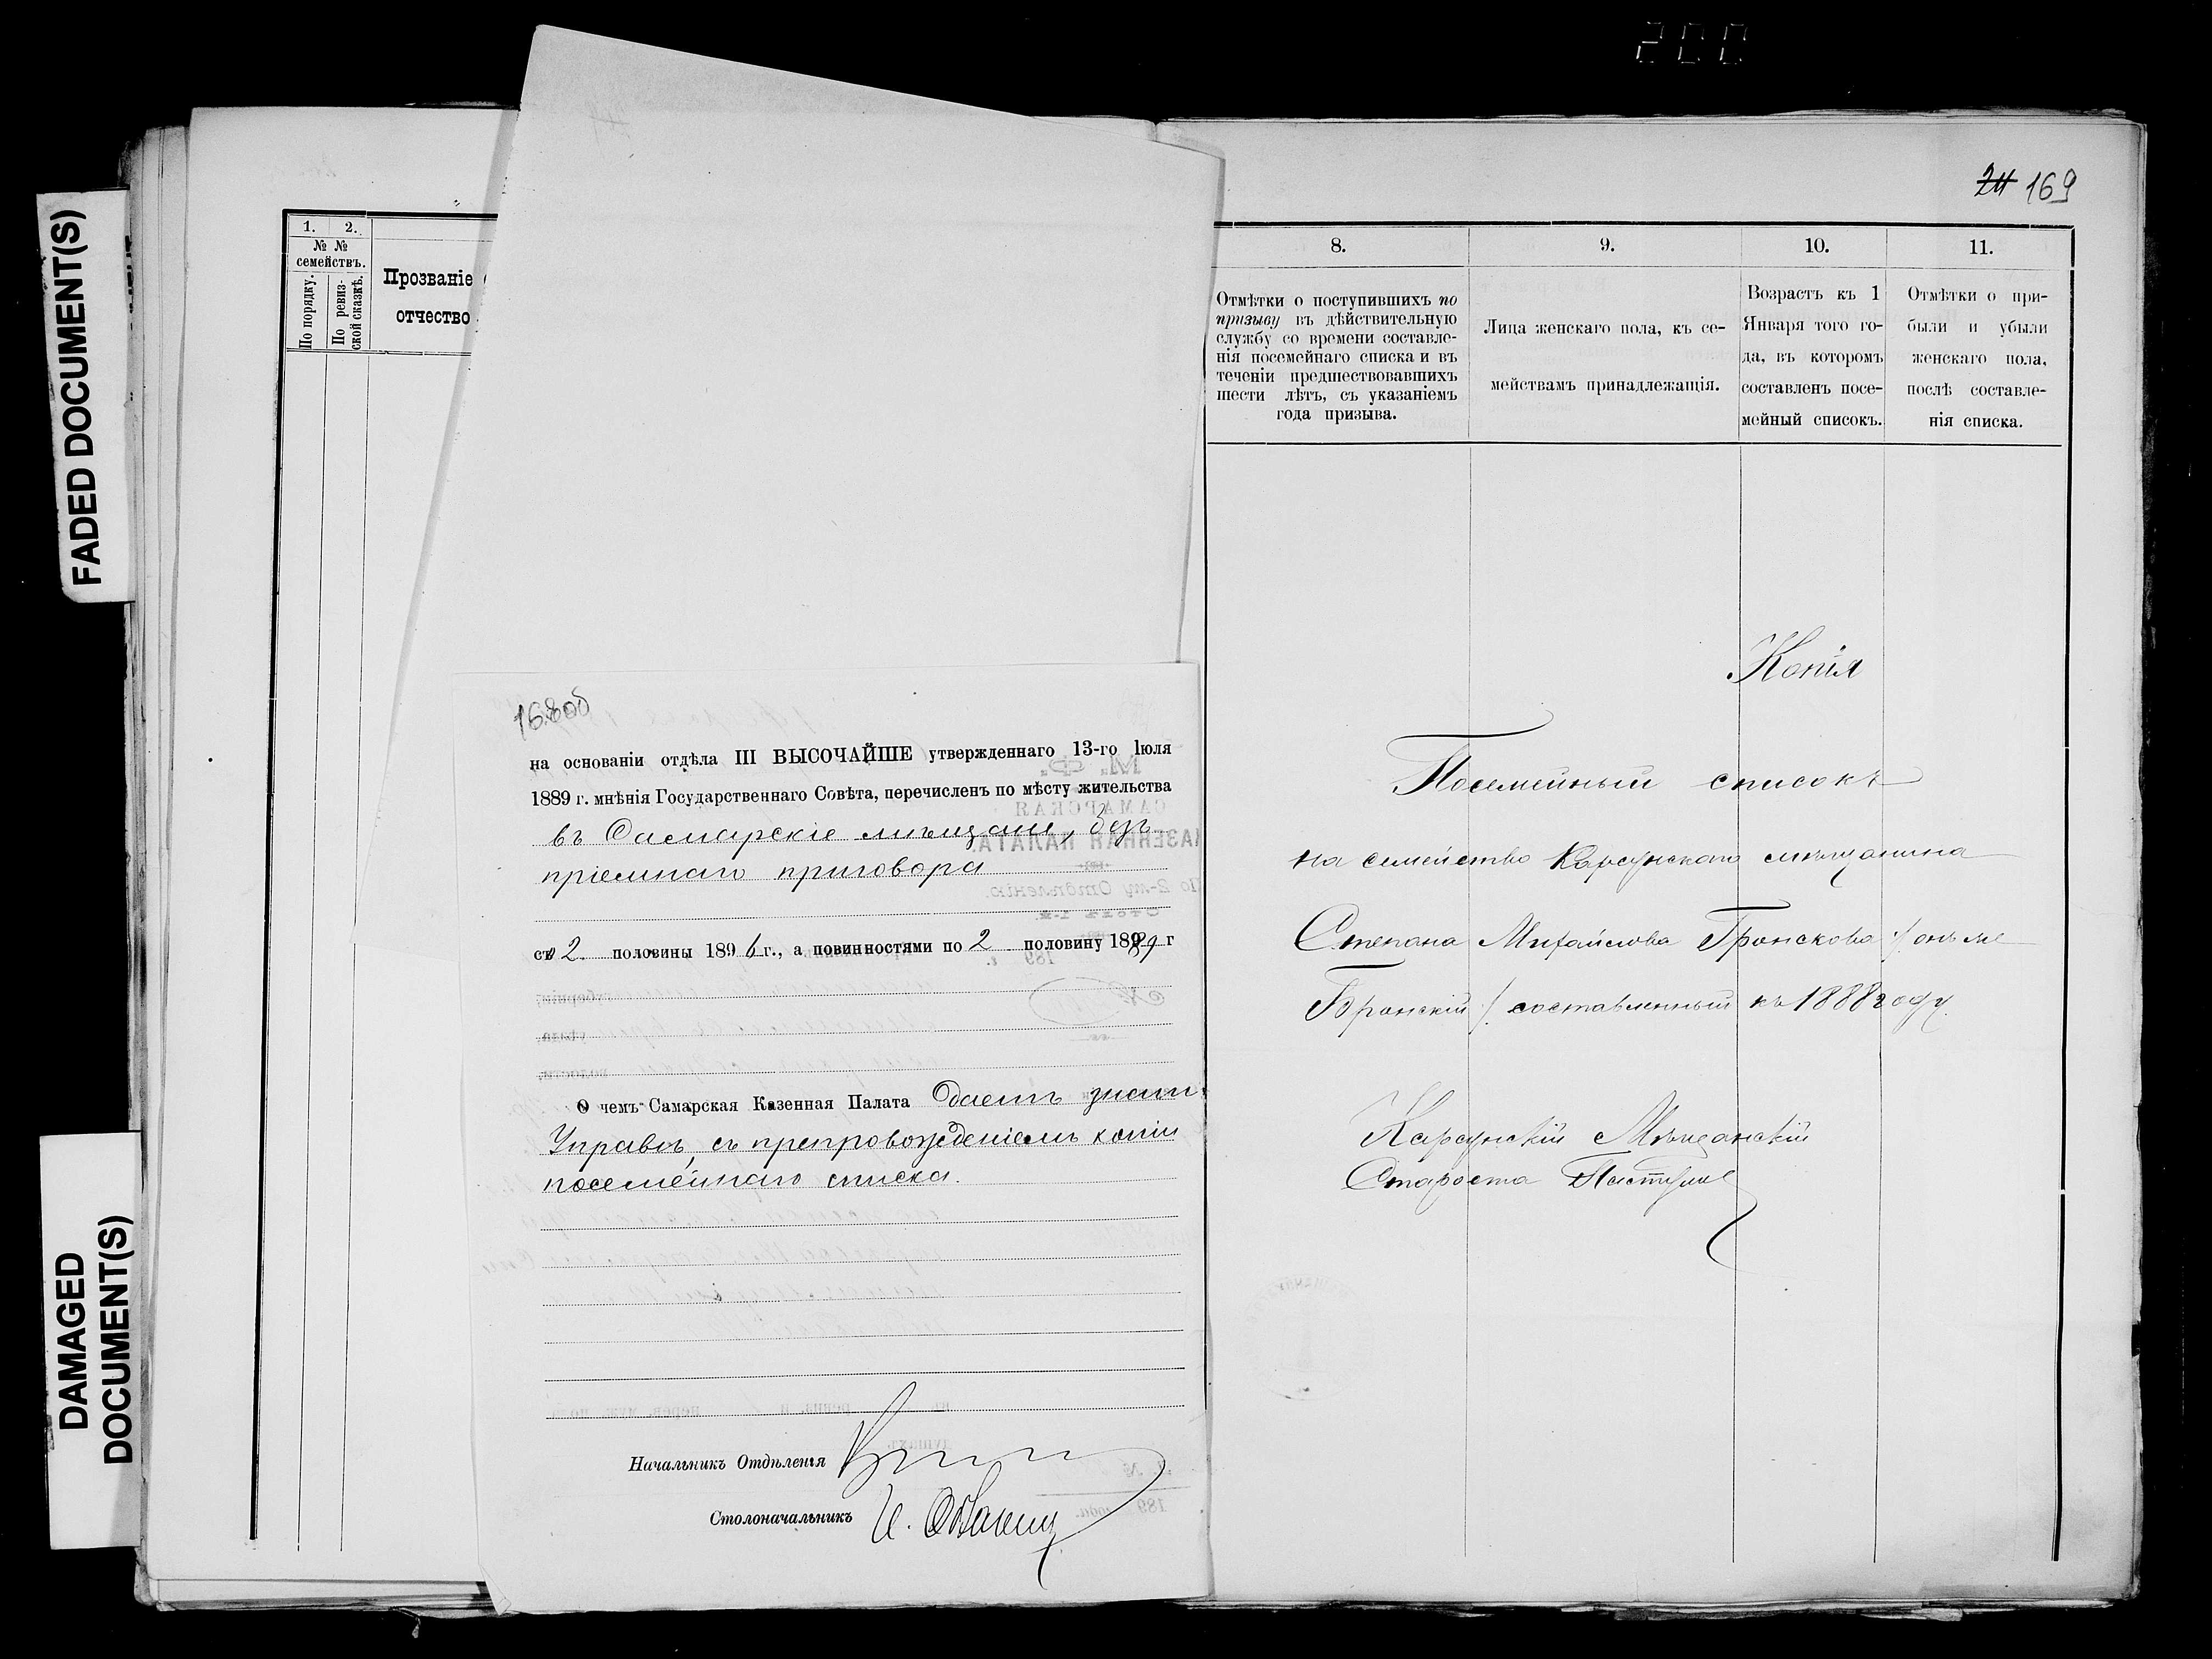 200
FADED DOCUMENT(S)
DAMAGED
DOCUMENT(S)
1. 2.
№ №
семействъ.
По порядку.
По ревиз-
ской сказкѣ.
Прозваніе
отчество
на основаніи отдѣла III ВЫСОЧАЙШЕ утвержденнаго 13-го Іюля
1889 г. мнѣнія Государственнаго Совѣта, перечисленъ по мѣсту жительства
въ Самарскіе мѣщане, безъ
пріемнаго приговора
съ 2 половины 1896 г., а повинностями по 2 половину 189 г
О чемъ Самарская Казенная Палата даетъ знать
Управѣ, съ препровожденіемъ копіи
посемейнаго списка.
Начальникъ Отдѣленія
Столоначальникъ И.
24 169
8. 9. 10. 11.
Отмѣтки о поступившихъ по
призыву въ дѣйствительную
службу со времени составле-
нія посемейнаго списка и въ
теченіи предшествовавшихъ
шести лѣтъ, съ указаніемъ
года призыва.
Лица женскаго пола, къ се-
мействамъ принадлежащія.
Возрастъ къ 1
Января того го-
да, въ которомъ
составленъ посе-
мейный списокъ.
Отмѣтки о при-
были и убыли
женскаго пола,
послѣ составле-
нія списка.
Копія
Посемейный списокъ
на семейство Карсунскаго мѣщанина
Степана Михайлова Бронскова /: онъ же
Бронскій /: составленный къ 1888 году.
Карсунскій Мѣщанскій
Староста